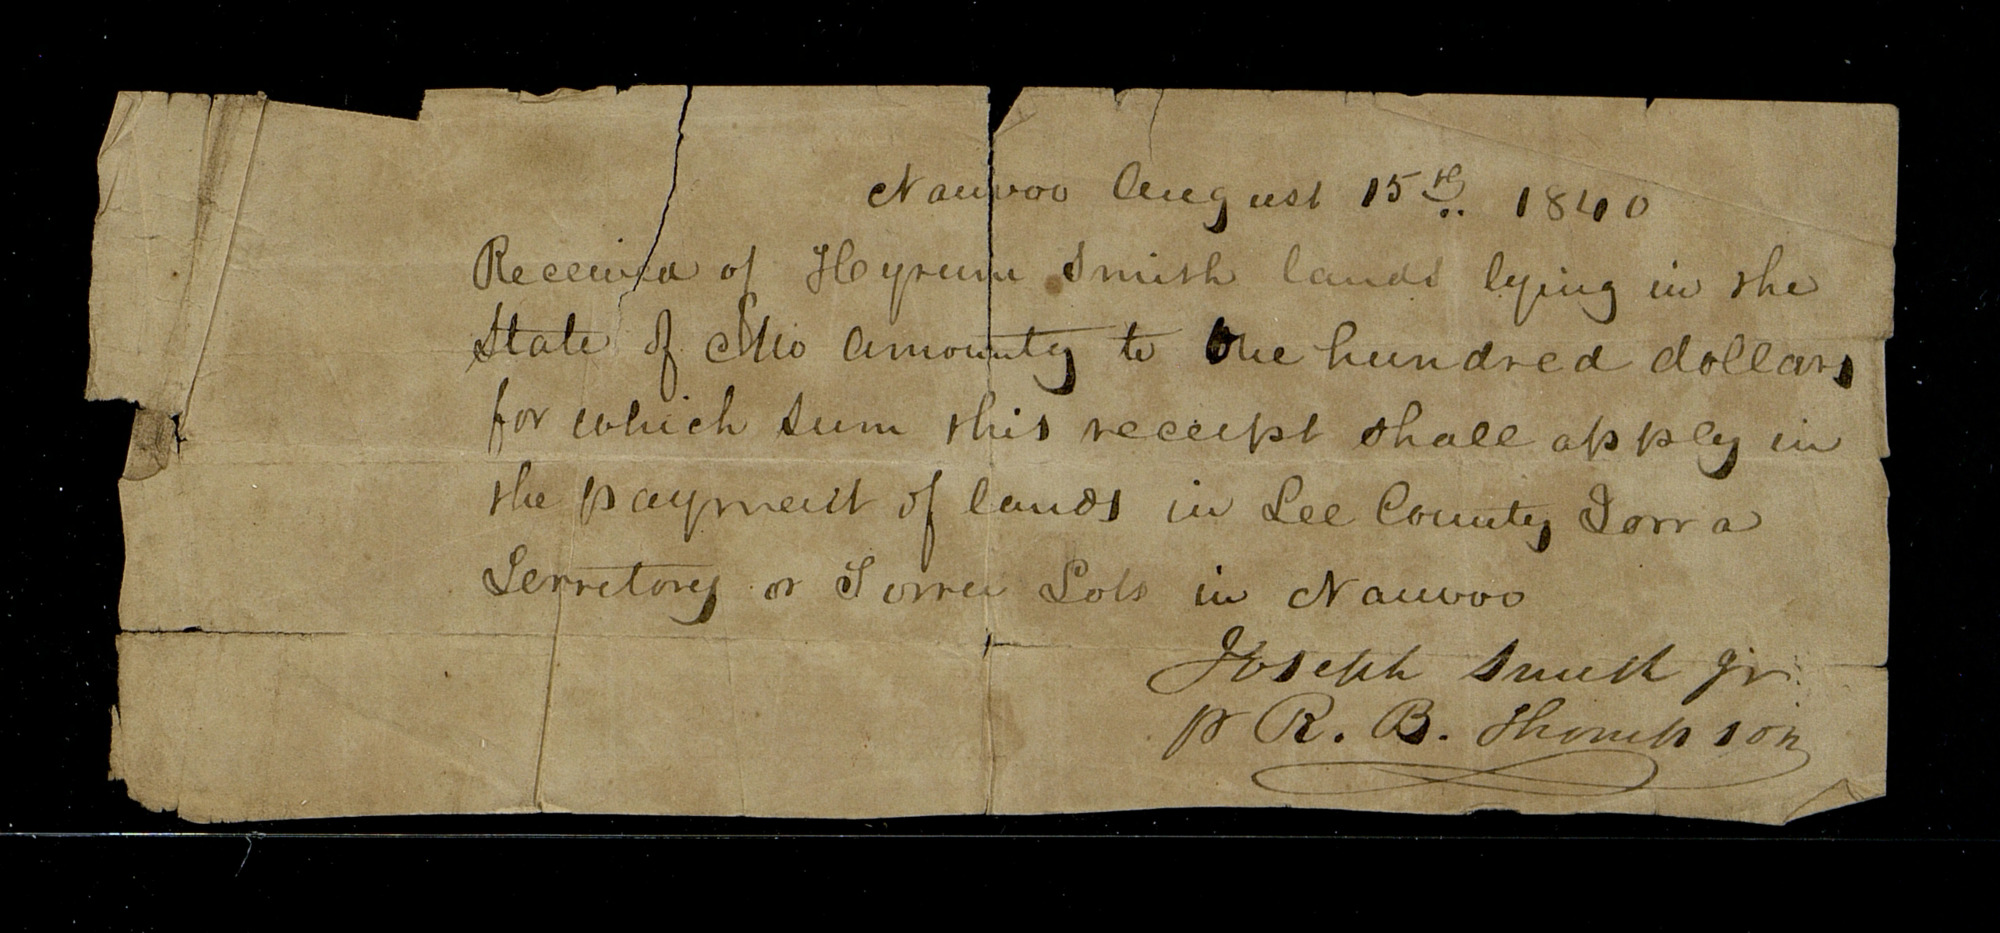 Nauvoo August 15th. 1840
Received of Hyrum Smith lands lying in the
State of Ohio amounty to One hundred dollars
for which sum this receipt shall apply in
the payment of lands in Lee County Iowa
Territory or Town Lots in Nauvoo
Joseph Smith Jr
p R. B. Thompson